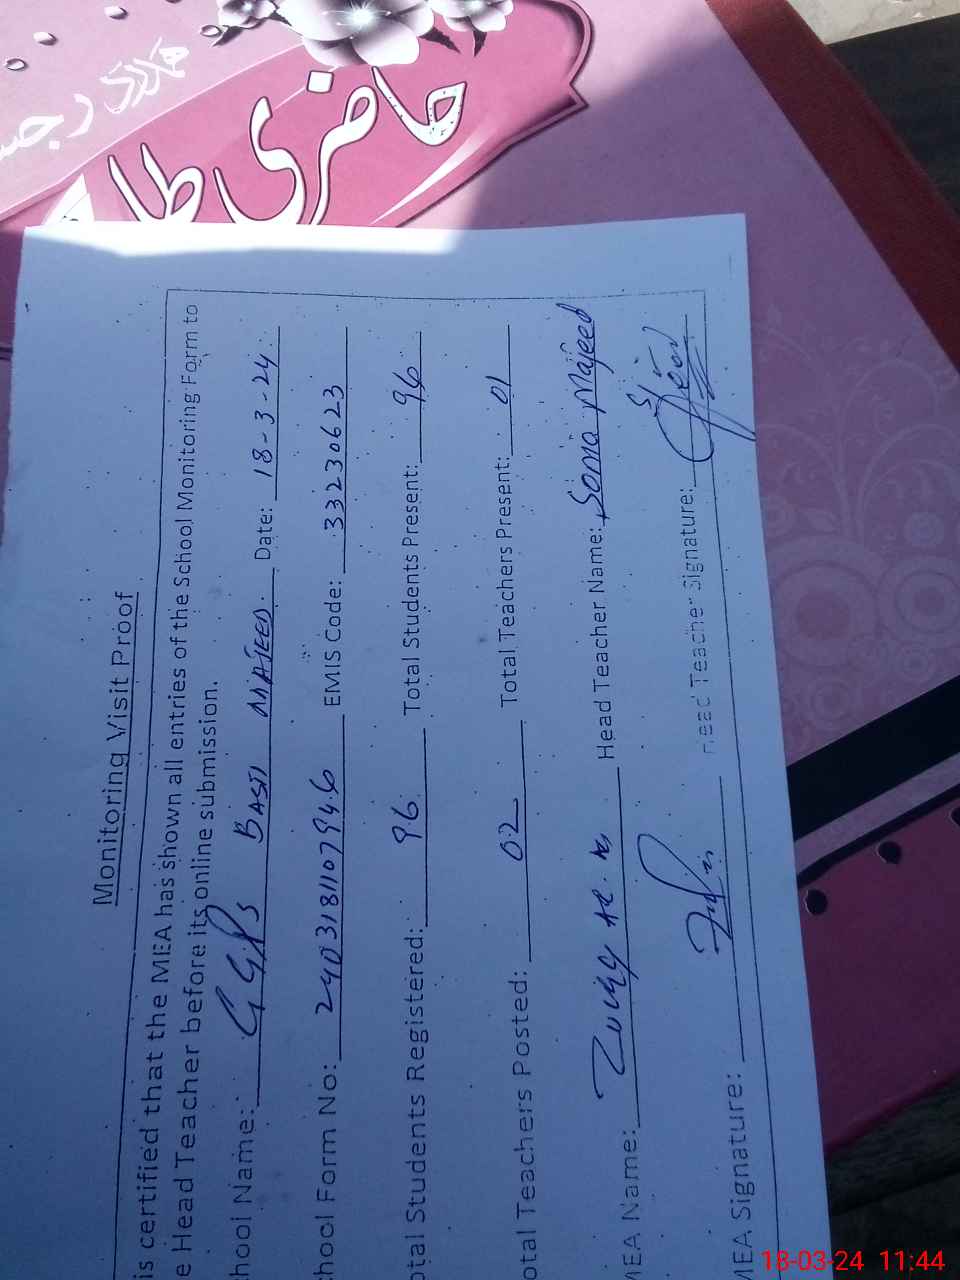 حاضری طلباء
Monitoring Visit Proof
is certified that the MEA has shown all entries of the School Monitoring Form to
e Head Teacher before its online submission.
hool Name: GGPS BASTI MAJEED. Date: 18-3-24
chool Form No: EMIS Code: 33230623
otal Students Registered: 96 Total Students Present: 96
otal Teachers Posted: 02 Total Teachers Present: 01
MEA Name: Head Teacher Name: Sonia Majeed
MEA Signature: Head Teacher Signature:
18-03-24 11:44